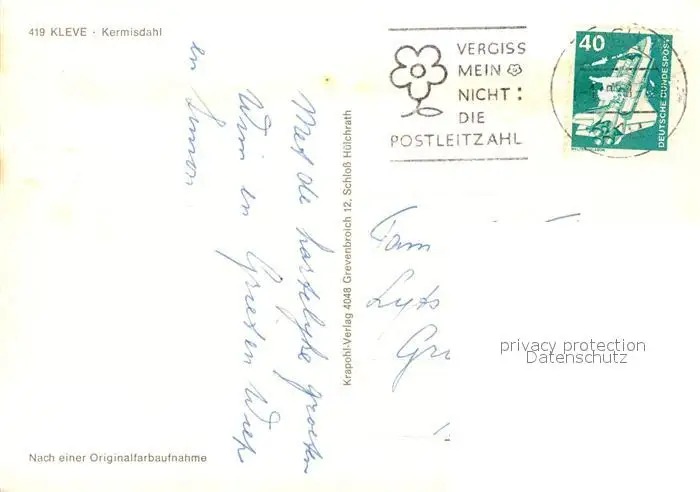 419 KLEVE · Kermisdahl
VERGISS
MEIN
NICHT:
DIE
POSTLEITZAHL
40
DEUTSCHE BUNDESPOST
Met de hartelyke groeten
Wim en Grieten Wiek
en Simon
Krapohl-Verlag 4048 Grevenbroich 12, Schloß Hülchrath
Fam
Lyts
Gr
privacy protection
Datenschutz
Nach einer Originalfarbaufnahme